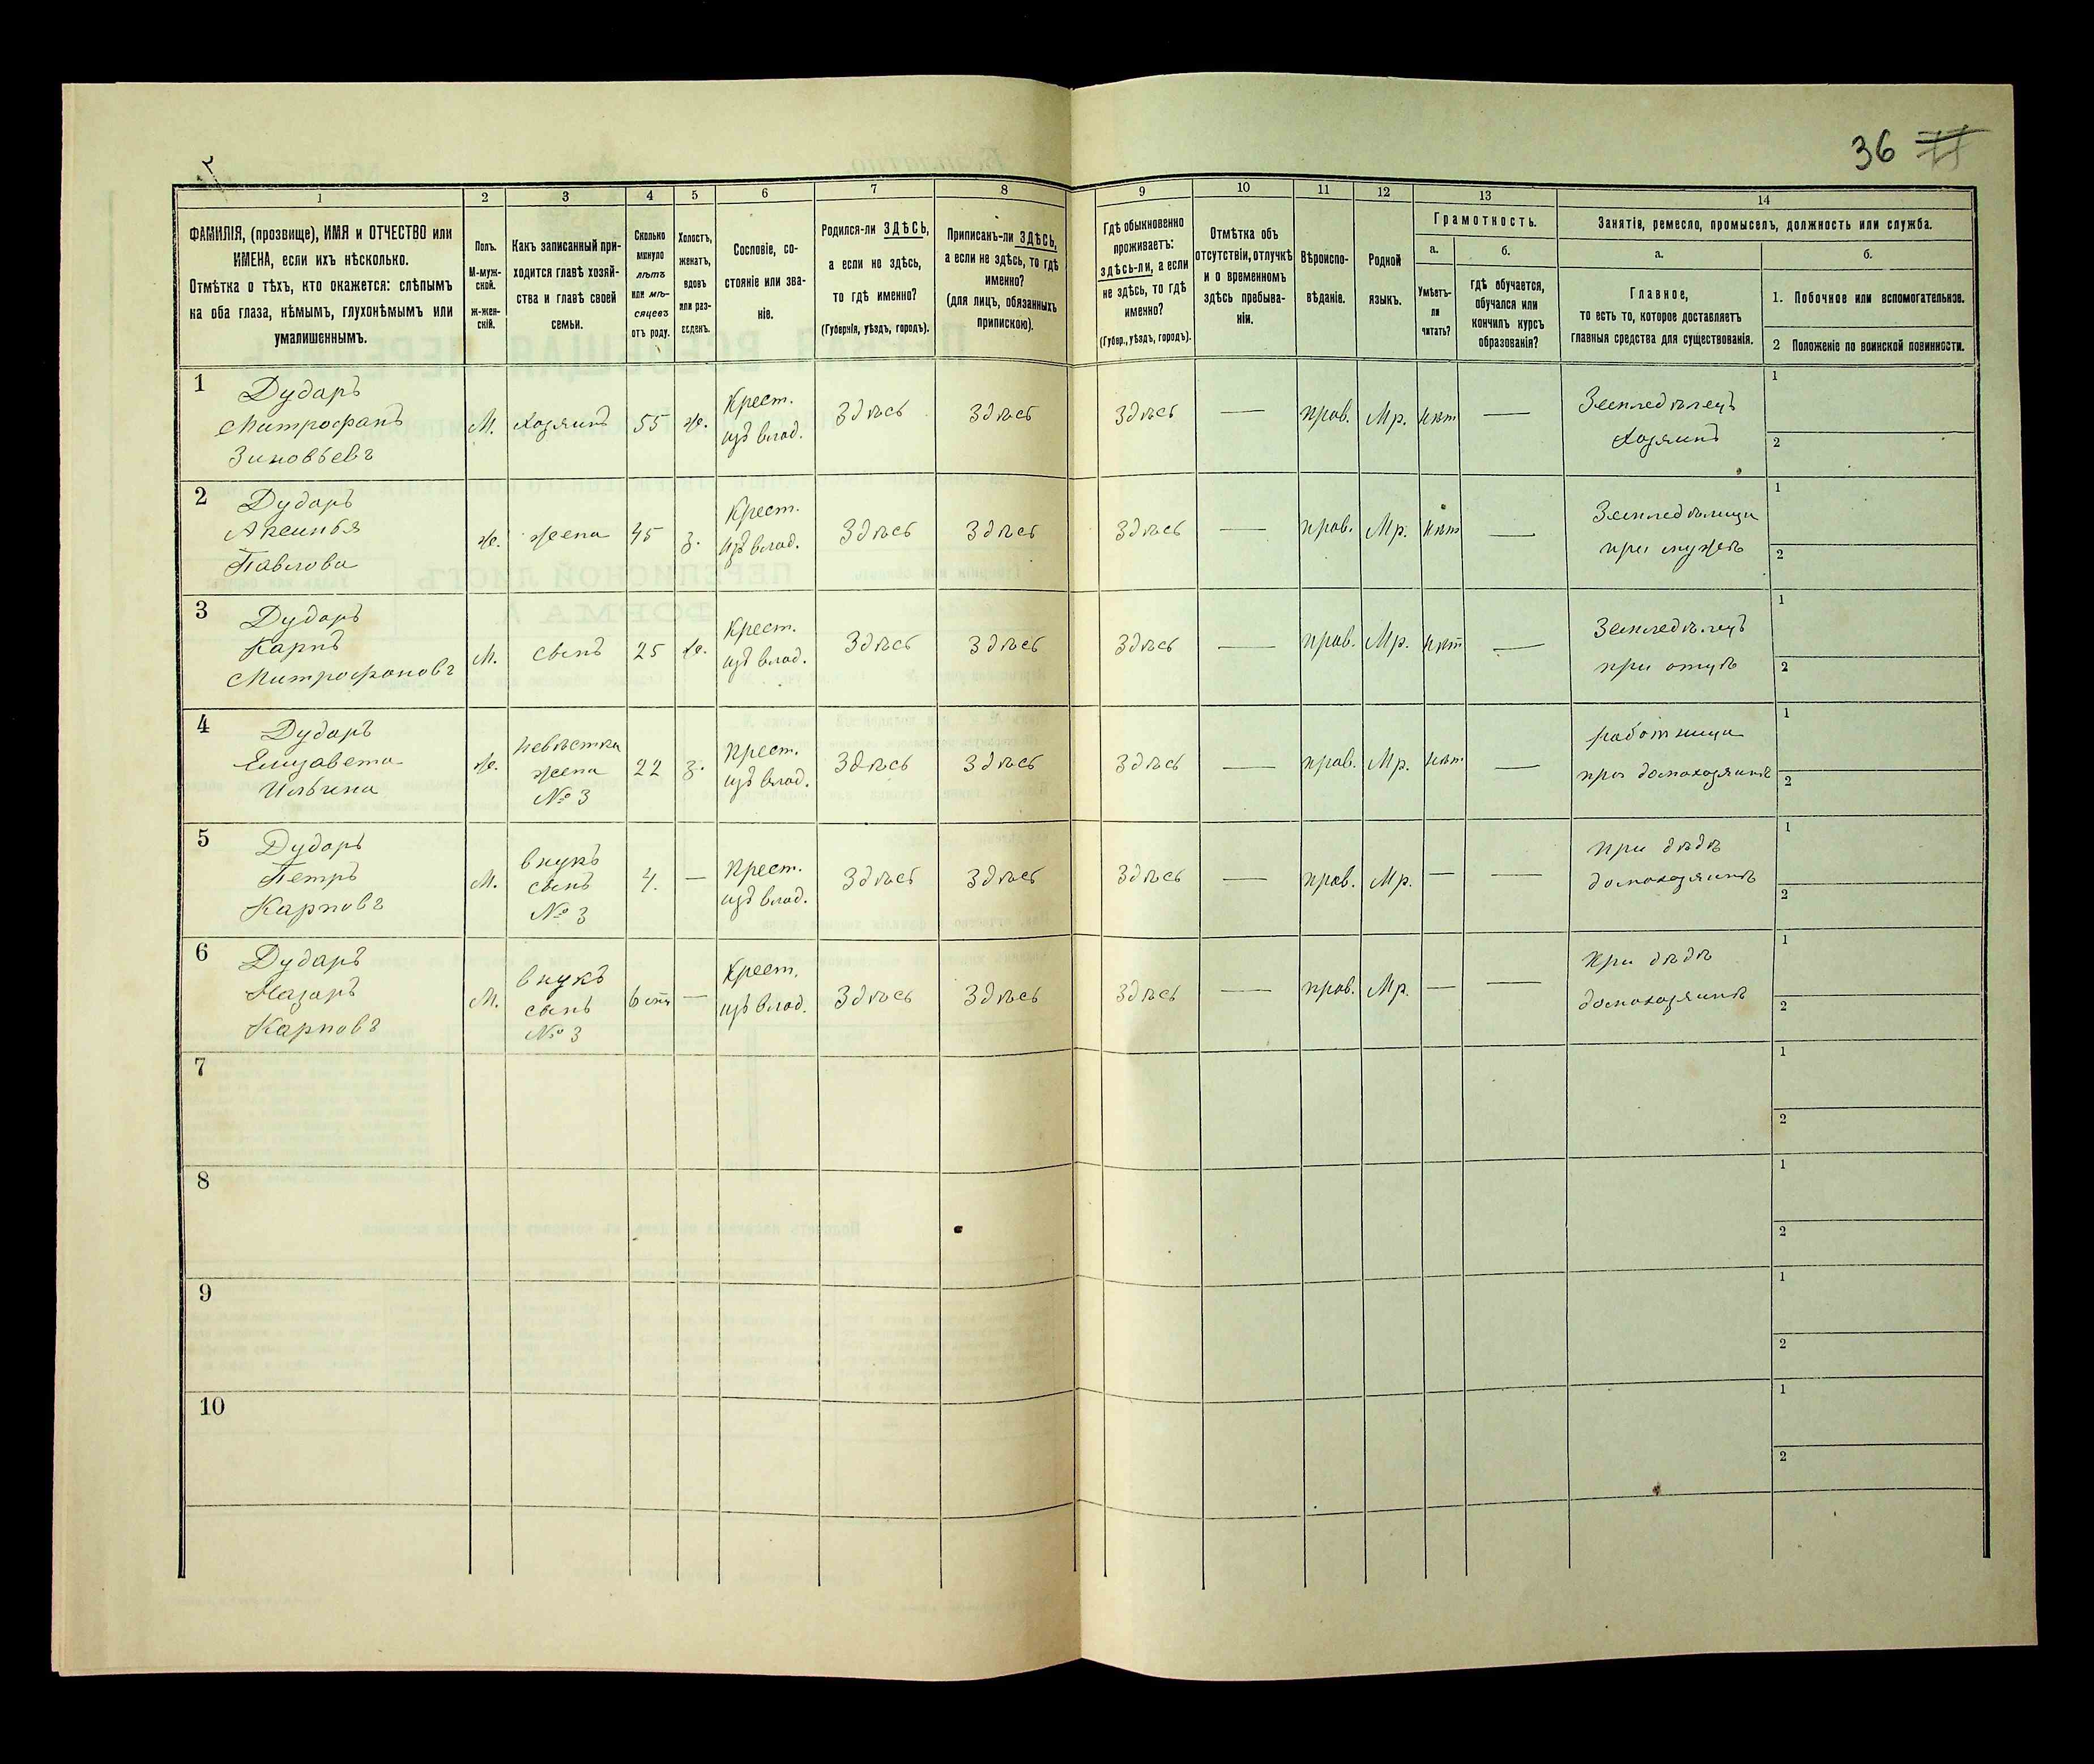 36
1 2 3 4 5 6 7 8 9 10 11 12 13 14
ФАМИЛІЯ, (прозвище), ИМЯ и ОТЧЕСТВО или
ИМЕНА, если ихъ нѣсколько.
Отмѣтка о тѣхъ, кто окажется: слѣпымъ
на оба глаза, нѣмымъ, глухонѣмымъ или
умалишеннымъ.
Полъ.
М-муж-
ской.
Ж-жен-
скій.
Какъ записанный при-
ходится главѣ хозяй-
ства и главѣ своей
семьи.
Сколько
минуло
лѣтъ
или мѣ-
сяцевъ
отъ роду.
Холостъ,
женатъ,
вдовъ
или раз-
веденъ.
Сословіе, со-
стояніе или зва-
ніе.
Родился-ли ЗДѢСЬ,
а если не здѣсь,
то гдѣ именно?
(Губернія, уѣздъ, городъ).
Приписанъ-ли ЗДѢСЬ,
а если не здѣсь, то гдѣ
именно?
(для лицъ, обязанныхъ
припискою).
Гдѣ обыкновенно
проживаетъ:
здѣсь-ли, а если
не здѣсь, то гдѣ
именно?
(Губер., уѣздъ, городъ).
Отмѣтка объ
отсутствіи, отлучкѣ
и о временномъ
здѣсь пребыва-
ніи.
Вѣроиспо-
вѣданіе.
Родной
языкъ.
Грамотность.
а.
Умѣетъ-
ли
читать?
б.
гдѣ обучается,
обучался или
кончилъ курсъ
образованія?
Занятія, ремесло, промыселъ, должность или служба.
а.
Главное,
то есть то, которое доставляетъ
главныя средства для существованія.
б.
1. Побочное или вспомогательное.
2 Положеніе по воинской повинности.
1
Дударъ
Митрофанъ
Зиновьевъ
М.
Хозяинъ
55
ж.
Крест.
изъ влад.
Здѣсь
Здѣсь
Здѣсь
—
прав.
Мр.
нѣт
—
Земледѣлецъ
Хозяинъ
1
2
2
Дударъ
Аксинья
Павлова
ж.
жена
45
з.
Крест.
изъ влад.
Здѣсь
Здѣсь
Здѣсь
—
прав.
Мр.
нѣт
—
Земледѣлица
при мужѣ
1
2
3
Дударъ
Карпъ
Митрофановъ
М.
сынъ
25
ж.
Крест.
изъ влад.
Здѣсь
Здѣсь
Здѣсь
—
прав.
Мр.
нѣт
—
Земледѣлецъ
при отцѣ
1
2
4
Дударъ
Елизавета
Ильина
ж.
невѣстка
жена
№ 3
22
з.
Крест.
изъ влад.
Здѣсь
Здѣсь
Здѣсь
—
прав.
Мр.
нѣт
—
работница
при домохозяинѣ
1
2
5
Дударъ
Петръ
Карповъ
М.
внукъ
сынъ
№ 3
4.
—
Крест.
изъ влад.
Здѣсь
Здѣсь
Здѣсь
—
прав.
Мр.
—
—
при дѣдѣ
домохозяинѣ
1
2
6
Дударъ
Назаръ
Карповъ
М.
внукъ
сынъ
№ 3
—
Крест.
изъ влад.
Здѣсь
Здѣсь
Здѣсь
—
прав.
Мр.
—
—
при дѣдѣ
домохозяинѣ
1
2
7
1
2
8
1
2
9
1
2
10
1
2